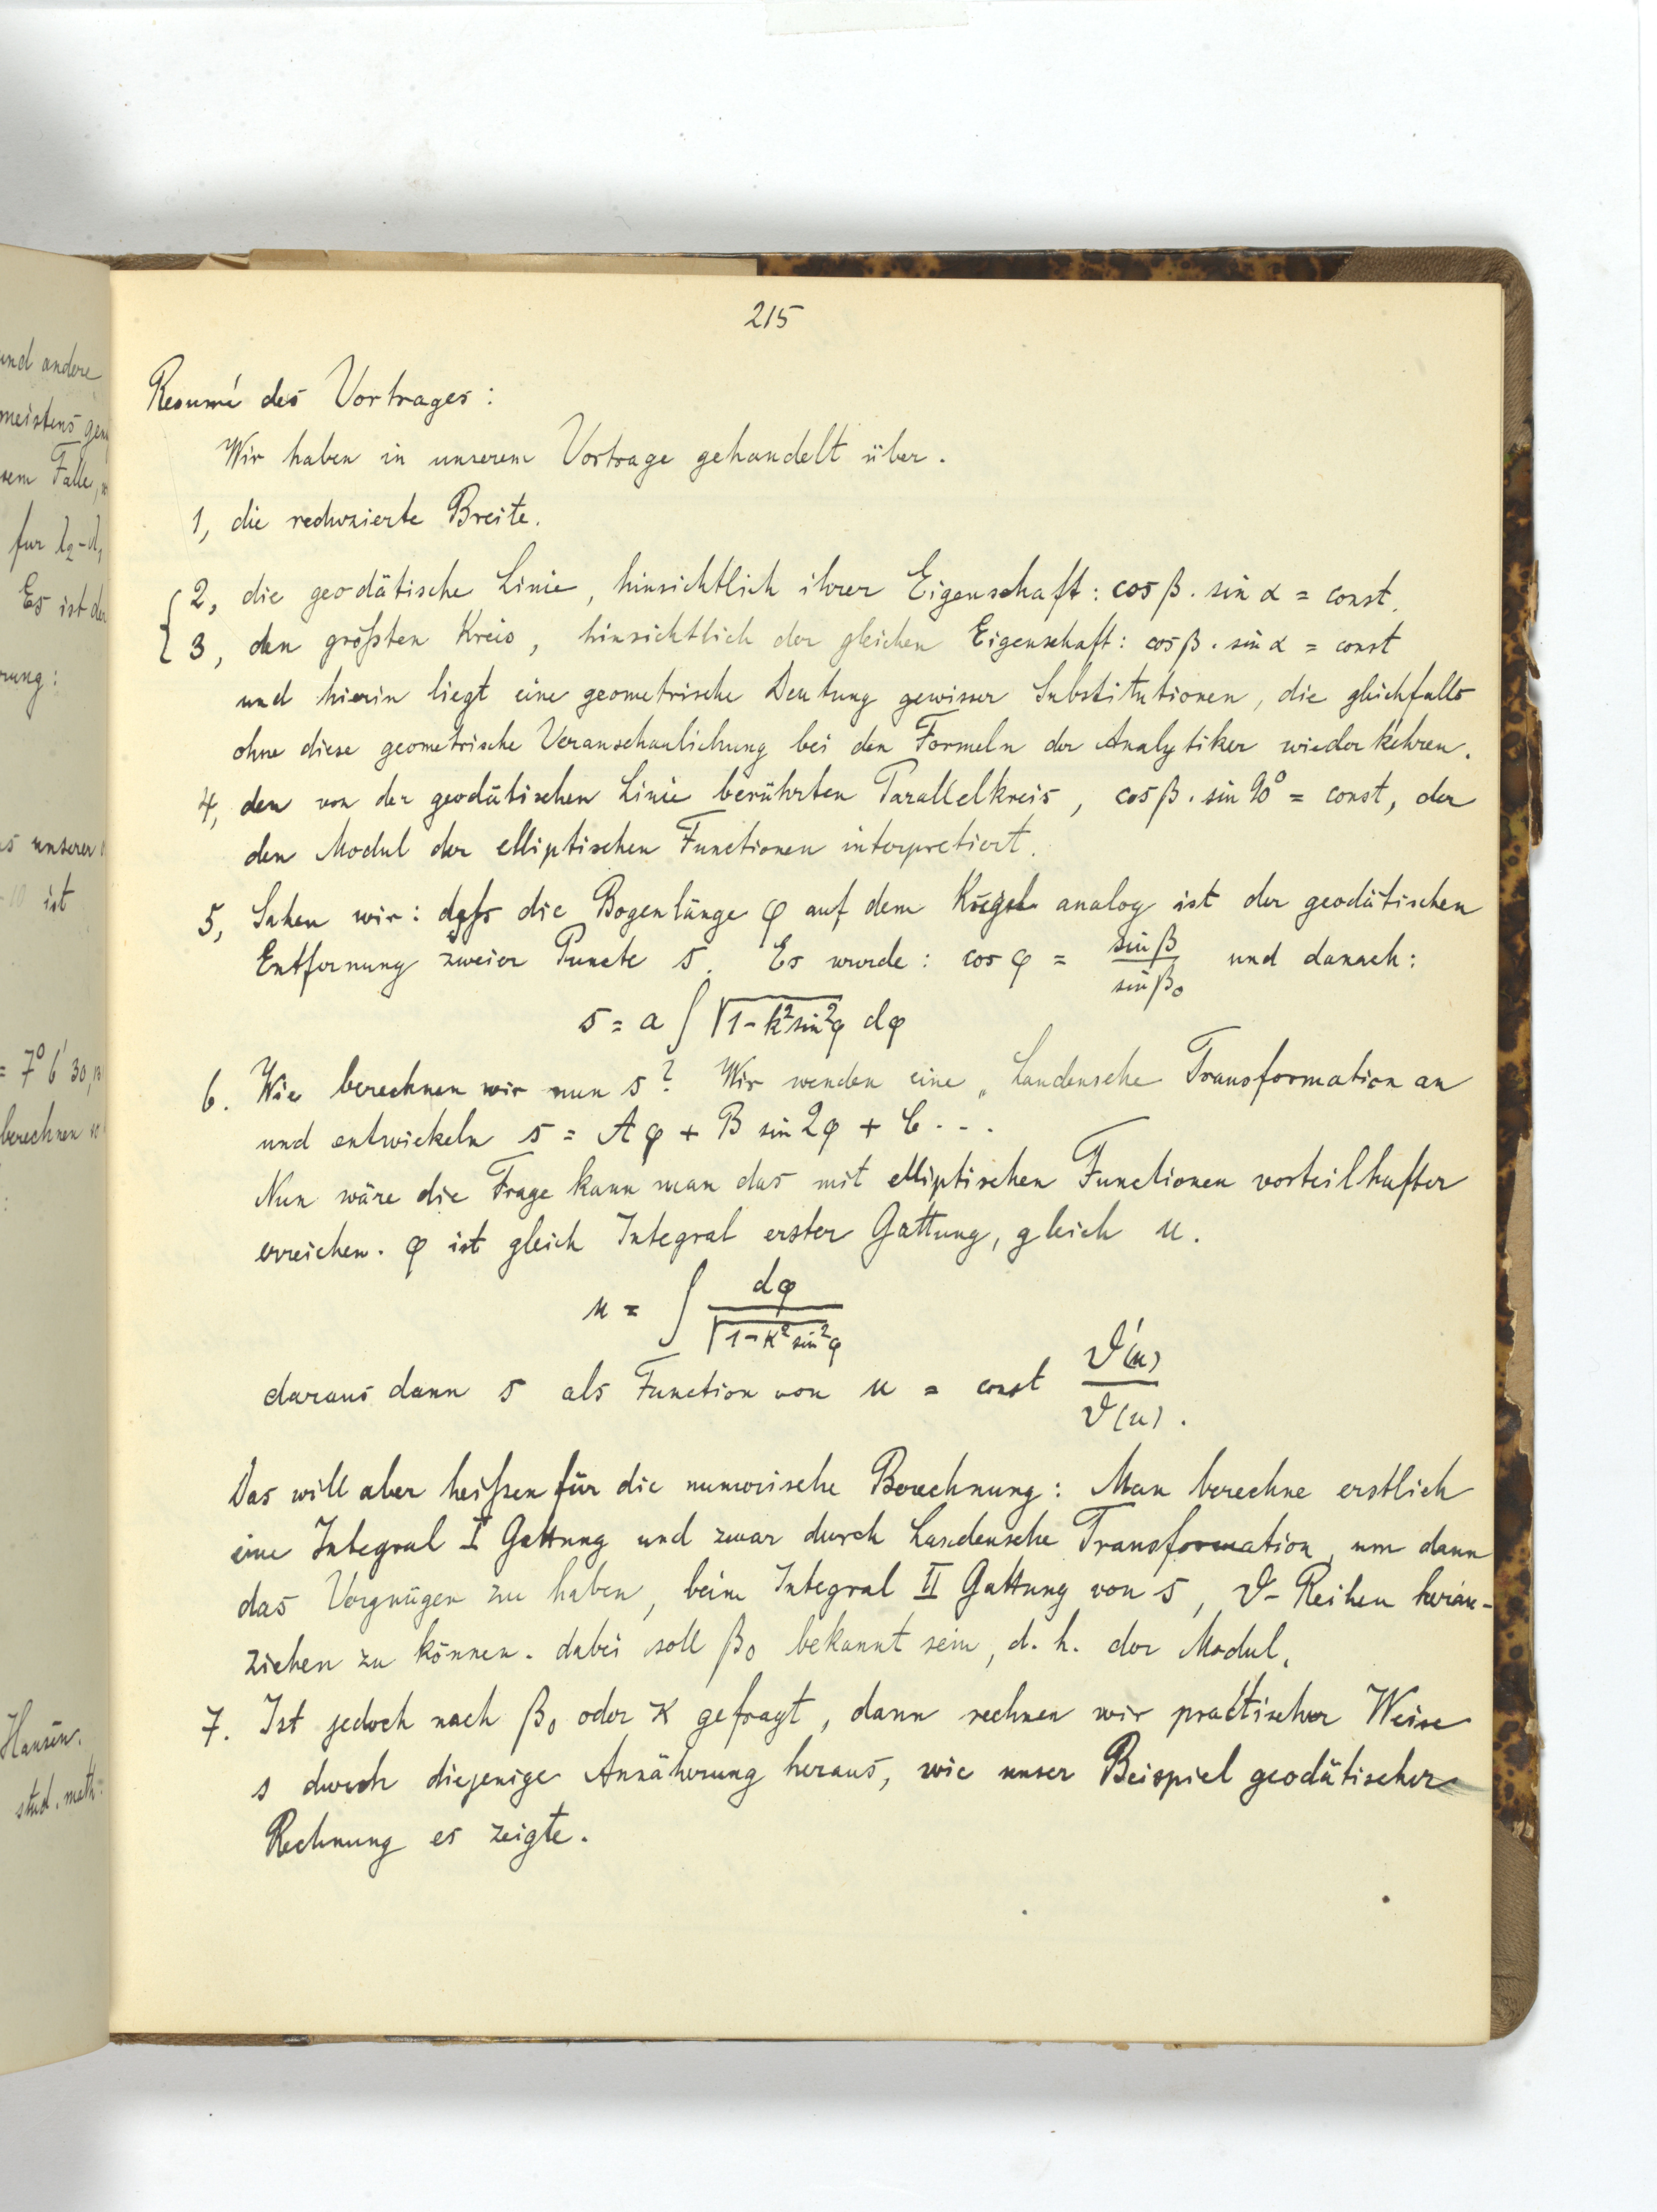 und andere
meistens gen
sem Falle, w
für l₂-l₁
Es ist der
rung:
s unserer
-10 ist
= 7° 6' 30,
berechnen
:
Hansen.
stud. math.
215
Resumé des Vortrages:
Wir haben in unserem Vortrage gehandelt über.
1, die reduzierte Breite.
2, die geodätische Linie, hinsichtlich ihrer Eigenschaft: cos β . sin α = const.
3, den größten Kreis, hinsichtlich der gleichen Eigenschaft: cos β . sin α = const
und hierin liegt eine geometrische Deutung gewisser Substitutionen, die gleichfalls
ohne diese geometrische Veranschaulichung bei den Formeln der Analytiker wiederkehren.
4, den von der geodätischen Linie berührten Parallelkreis, cos β . sin 90° = const, der
den Modul der elliptischen Functionen interpretiert.
5, Sahen wir: daß die Bogenlänge φ auf dem Kugel analog ist der geodätischen
Entfernung zweier Puncte s. Es wurde: cos φ = sin β / sin β₀ und danach:
s = a ∫ √(1-k² sin² φ) dφ
6. Wie berechnen wir nun s? Wir wenden eine „Landensche Transformation an
und entwickeln s = A φ + B sin 2φ + C ...
Nun wäre die Frage kann man das mit elliptischen Functionen vorteilhafter
erreichen. φ ist gleich Integral erster Gattung, gleich u.
u = ∫ dφ / √(1-k² sin² φ)
daraus dann s als Function von u = const ϑ'(u) / ϑ(u).
Das will aber heißen für die numerische Berechnung: Man berechne erstlich
eine Integral I Gattung und zwar durch Landensche Transformation, um dann
das Vergnügen zu haben, beim Integral II Gattung von s, ϑ-Reihen heran-
ziehen zu können. dabei soll β₀ bekannt sein, d. h. der Modul.
7. Ist jedoch nach β₀ oder κ gefragt, dann rechnen wir practischer Weise
s durch diejenige Annäherung heraus, wie unser Beispiel geodätischer
Rechnung es zeigte.